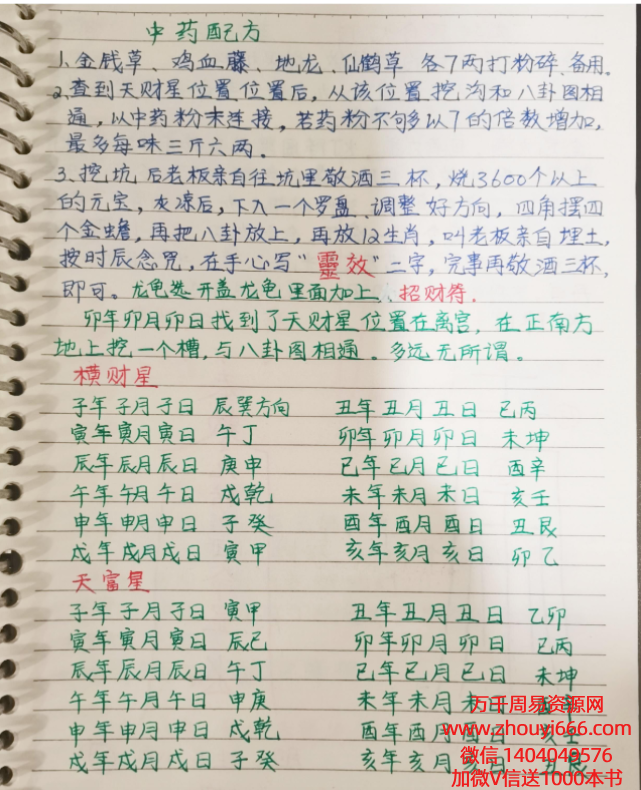 中药配方
1、金钱草、鸡血藤、地龙、仙鹤草 各7两打粉碎、备用。
2、查到天财星位置位置后，从该位置挖沟和八卦图相
通，以中药粉末连接，若药粉不够多以7的倍数增加，
最多每味三斤六两。
3、挖坑后老板亲自往坑里敬酒三杯，烧3600个以上
的元宝，灰凉后，下入一个罗盘、调整好方向，四角摆四
个金蟾，再把八卦放上，再放12生肖，叫老板亲自埋土，
按时辰念咒，在手心写“靈效”二字，完事再敬酒三杯，
即可。龙龟选开盖龙龟里面加上、招财符．
卯年卯月卯日找到了天财星位置在离宫，在正南方
地上挖一个槽，与八卦图相通。多远无所谓。
横财星
子年子月子日 辰巽方向 丑年丑月丑日 已丙
寅年寅月寅日 午丁 卯年卯月卯日 未坤
辰年辰月辰日 庚申 已年已月已日 酉辛
午年午月午日 戍乾 未年未月未日 亥壬
申年申月申日 子癸 酉年酉月酉日 丑艮
戍年戍月戍日 寅甲 亥年亥月亥日 卯乙
天富星
子年子月子日 寅甲 丑年丑月丑日 乙卯
寅年寅月寅日 辰已 卯年卯月卯日 已丙
辰年辰月辰日 午丁 已年已月已日 未坤
午年午月午日 申庚 未年未月未日 酉辛
申年申月申日 戍乾 酉年酉月酉日 亥壬
戍年戍月戍日 子癸 亥年亥月亥日 丑艮
万千周易资源网
www.zhouyj666.com
微信 1404049576
加微V信送1000本书